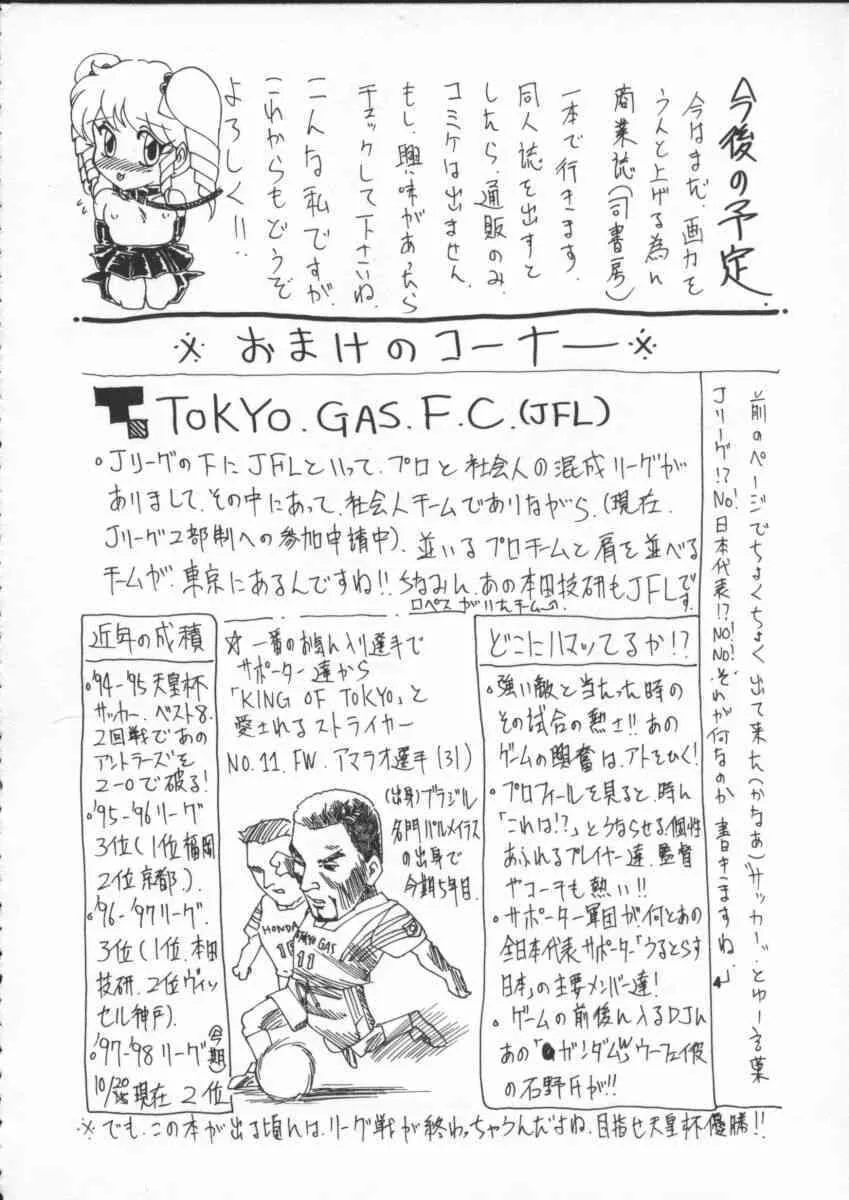 今後の予定
今はまだ、画力を
うんと上げる為に
商業誌(司書房)
一本で行きます。
同人誌を出すと
したら、通販のみ。
コミケは出ません。
もし、興味があったら
チェックして下さいね。
こんな私ですが、
これからもどうぞ
よろしく!!
※おまけのコーナー※
前のページでちょくちょく出て来た(かなあ)“サッカー”とゆー言葉
Jリーグ!?No!日本代表!?No!No!それが何なのか書きますね。
T. TOKYO.GAS.F.C.(JFL)
○Jリーグの下にJFLといって、プロと社会人の混成リーグが
ありまして、その中にあって、社会人チームでありながら、(現在、
Jリーグ2部制への参加申請中)、並いるプロチームと肩を並べる
チームが、東京にあるんですね!!ちなみに、あの本田技研もJFLです。
ロペスがいたチーム
近年の成績
○'94-'95天皇杯
サッカー、ベスト8。
2回戦であの
アントラーズを
2-0で破る!
○'95-'96リーグ
3位(1位福岡
2位京都)。
○'96-'97リーグ。
3位(1位、本田
技研、2位ヴィッ
セル神戸)。
○'97-'98リーグ(今期)
10/20現在2位
☆一番のお気に入り選手で
サポーター達から
「KING OF TOKYO」と
愛されるストライカー
NO.11.FW.アマラオ選手(31)
(出身)ブラジル
名門パルメイラス
の出身で
今期5年目。
HONDA
10
TOKYO GAS
11
どこにハマッてるか!?
○強い敵と当たった時の
その試合の熱さ!!あの
ゲームの興奮は、アトをひく!
○プロフィールを見ると、時に
「これは!?」とうならせる個性
あふれるプレイヤー達、監督
やコーチも熱い!!
○サポーター軍団が、何とあの
全日本代表サポーター「うるとらす
日本」の主要メンバー達!
○ゲームの前後に入るDJに
あの「ガンダムW」ウーフェイ役
の石野氏が!!
※でも、この本が出る頃には、リーグ戦が終わっちゃうんだよね。目指せ天皇杯優勝!!